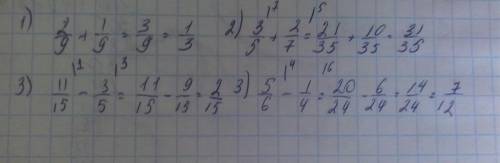 1) 2/9 + 1/9 = 3/9 = 1/3 2) 3/5 |7 + 2/7 |5 = 21/35 + 10/35 = 31/35
3) 11/15 |2 - 3/5 |3 = 11/15 - 9/15 = 2/15 3) 5/6 |4 - 1/4 |6 = 20/24 - 6/24 = 14/24 = 7/12